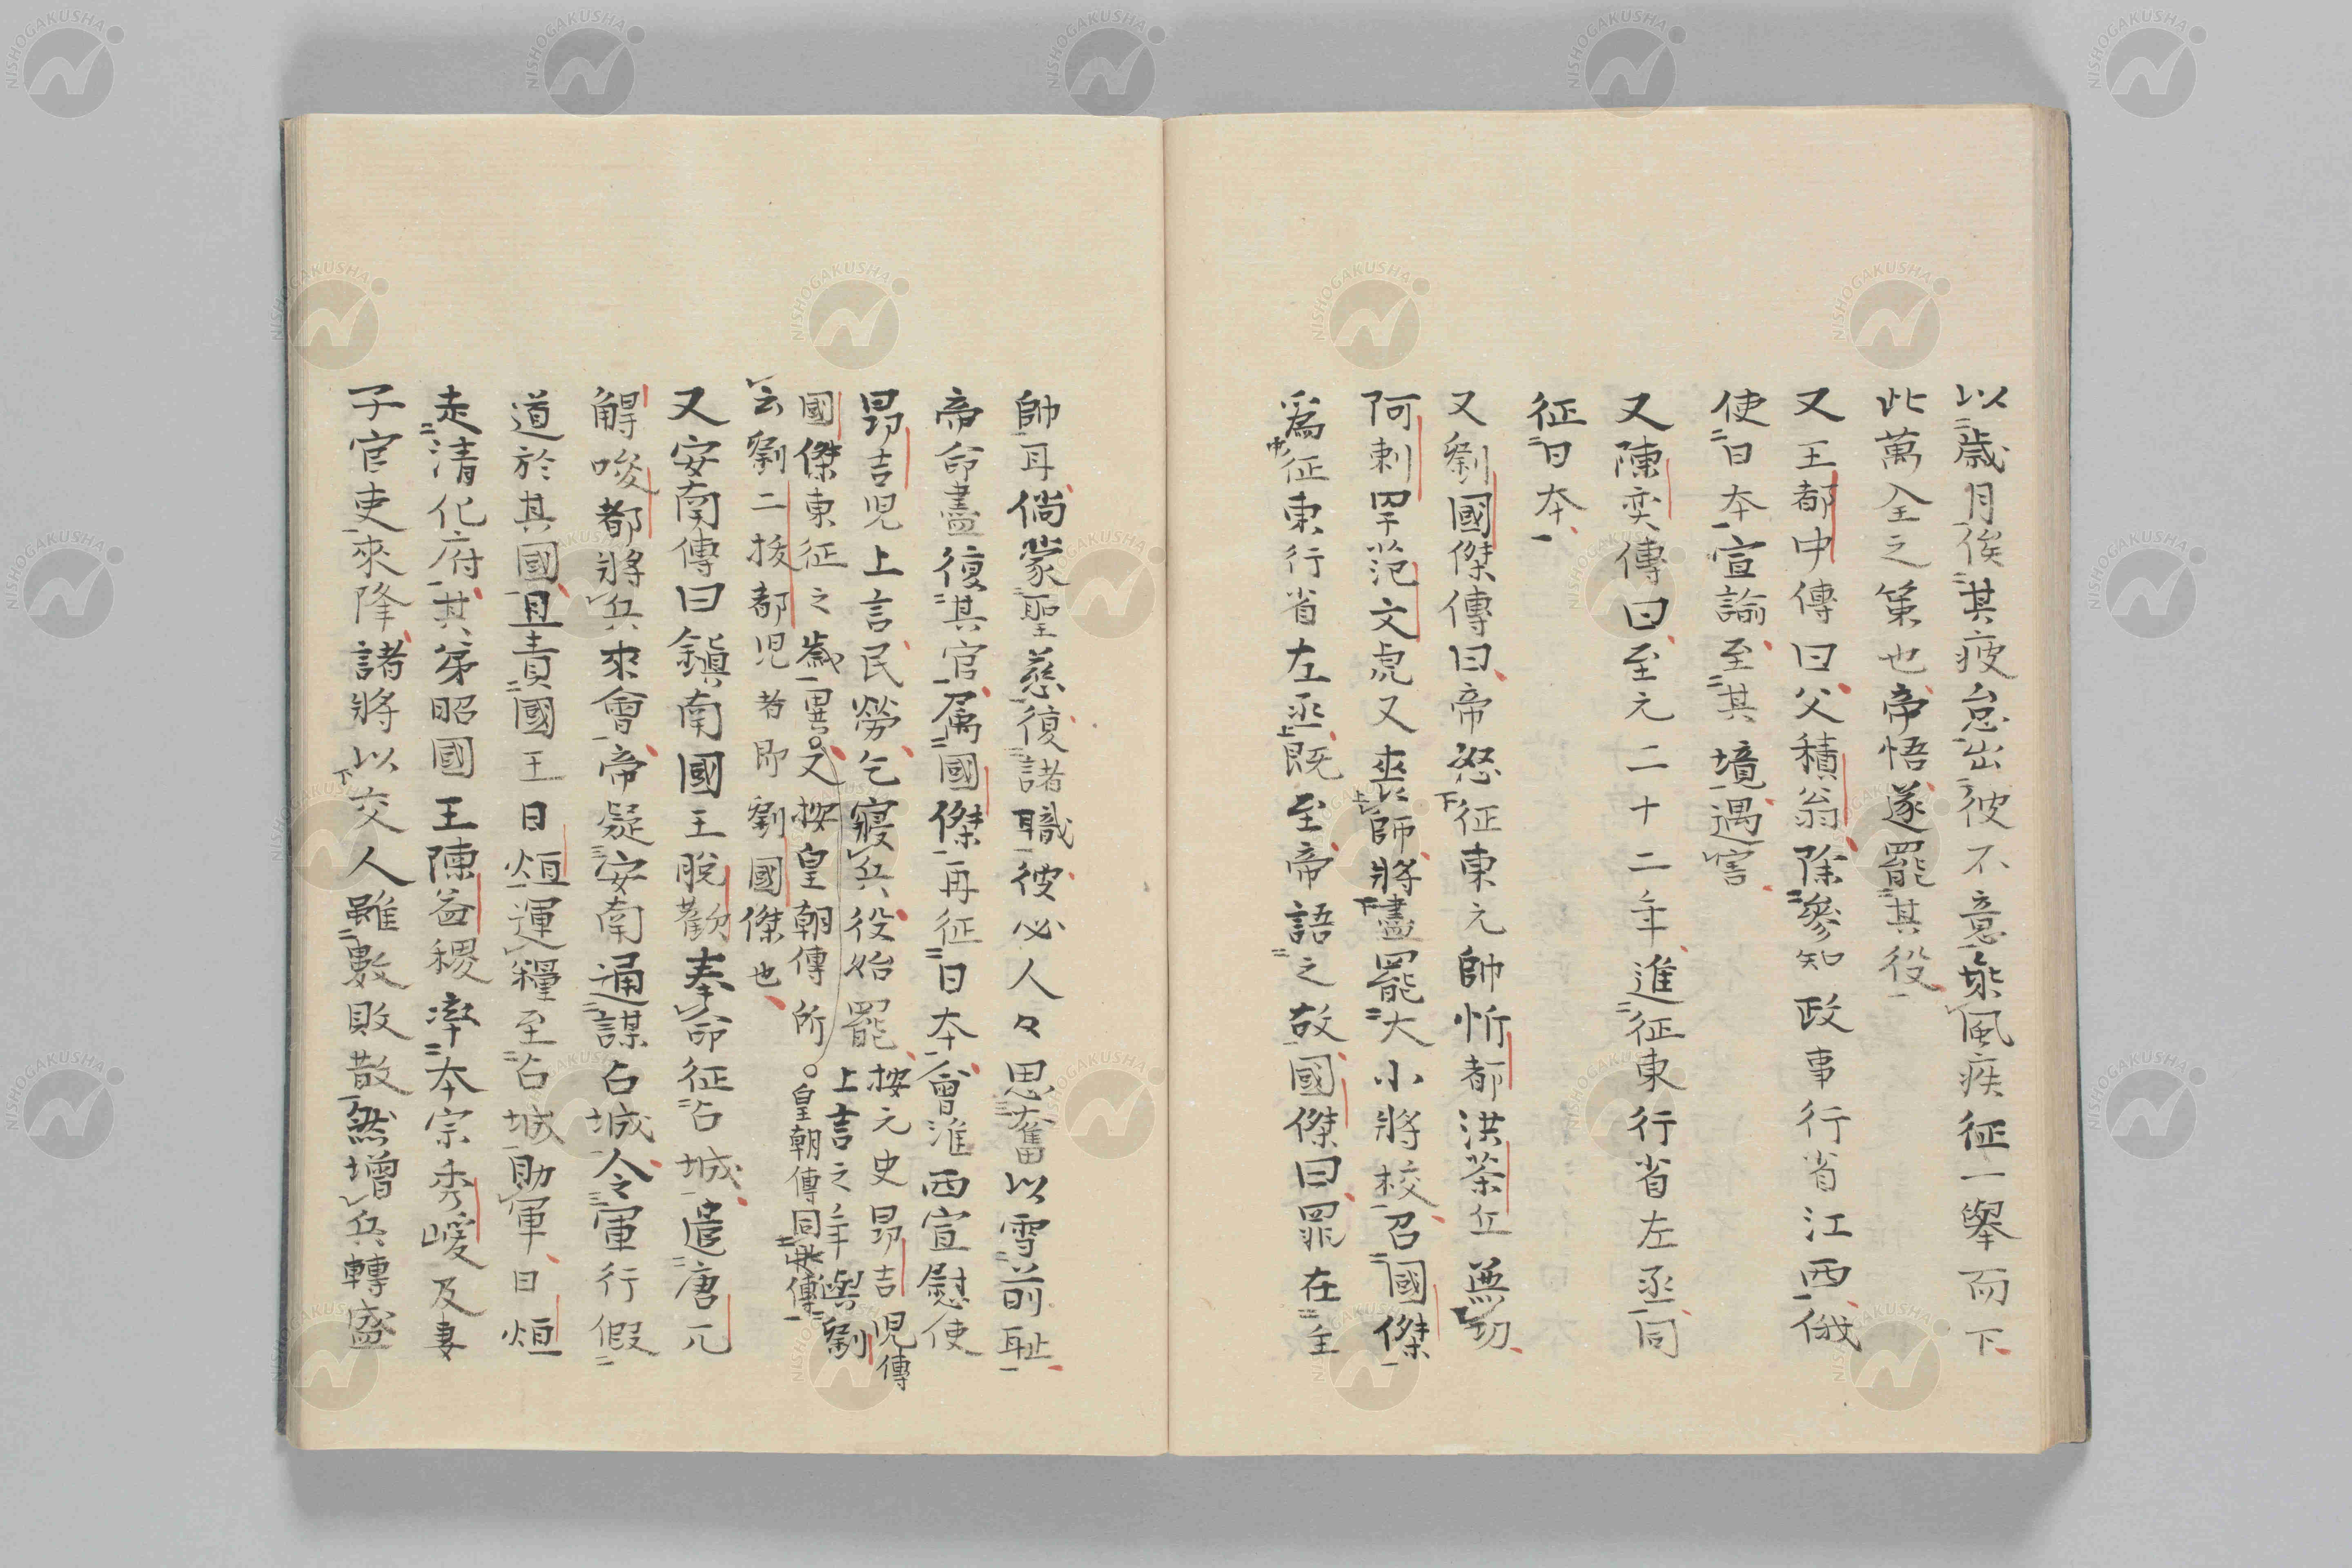 以歳月俟其疲怠出彼不意乗風疾征一擧而下
此萬全之策也帝悟遂罷其役
又王都中傳曰父積翁除參知政事行省江西俄
使日本宣諭至其境遇害
又陳奕傳曰至元二十二年進征東行省左丞同
征日本
又劉國傑傳曰帝怒征東元帥忻都洪茶丘無功
阿剌罕范文虎又喪師將盡罷大小將校召國傑
爲征東行省左丞既至帝語之故國傑曰罪在主
帥耳倘蒙聖慈復諸職彼必人々思奮以雪前耻
帝命盡復其官属國傑再征日本會淮西宣慰使
昂吉児上言民勞乞寢兵役始罷按元史昂吉児傳
上言之年與劉
國傑東征之歳異又按皇朝傳所皇朝傳同其傳
云劉二抜都児者即劉國傑也
又安南傳曰鎮南國王脱歡奉命征占城遣唐兀
觧唆都將兵來會帝疑安南通謀占城令軍行假
道於其國且責國王日烜運糧至占城助軍日烜
走清化府其弟昭國王陳益稷率本宗秀嵈及妻
子官吏來降諸將以交人雖數敗散然增兵轉盛